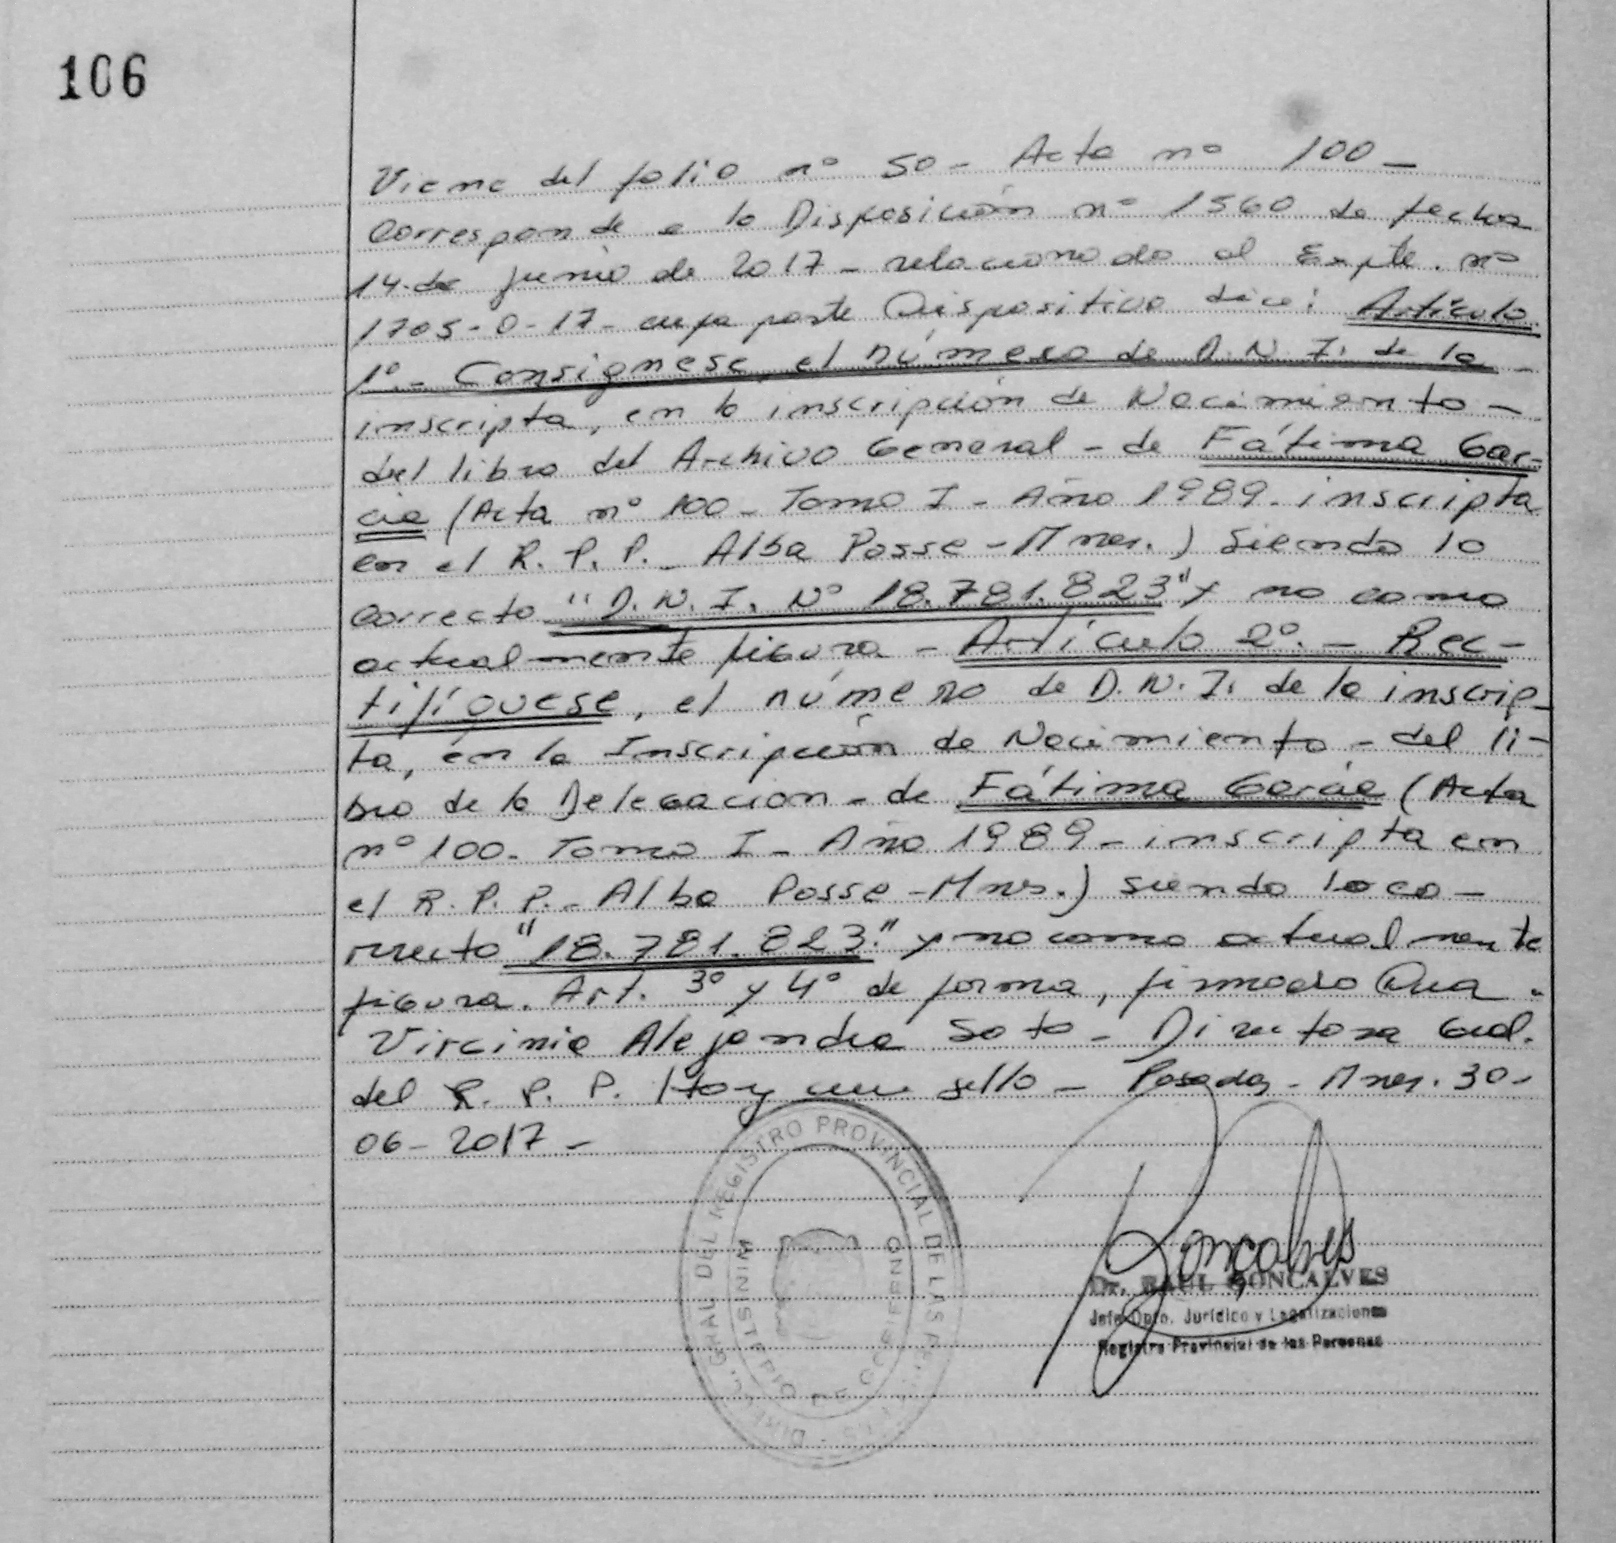 106
Viene del folio nº 50 - Acta nº 100 -
Corresponde a la Disposición nº 1560 de fecha
14 de junio de 2017 - relacionado al Expte. nº
1705-0-17 - cuya parte Dispositiva dice: Artículo
1º.- Consígnese, el número de D.N.I. de la -
inscripta, en la inscripción de Nacimiento -
del libro del Archivo General - de Fátima Gar-
cia (Acta nº 100 - Tomo I - Año 1989 - inscripta
en el R.P.P. - Alba Posse - Mnes.) siendo lo
correcto "D.N.I. Nº 18.781.823" y no como
actualmente figura - Artículo 2º. - Rec-
tifíquese, el número de D.N.I. de la inscrip-
ta, en la Inscripción de Nacimiento - del li-
bro de la Delegación - de Fátima García (Acta
nº 100 - Tomo I - Año 1989 - inscripta en
el R.P.P. - Alba Posse - Mnes.) siendo lo co-
rrecto "18.781.823." y no como actualmente
figura. Art. 3º y 4º de forma, firmado Dra.
Virginia Alejandra Soto - Directora Gral.
del R.P.P. Hay un sello - Posadas - Mnes. 30-
06-2017 -
DIREC. GRAL. DEL REGISTRO PROVINCIAL DE LAS PERSONAS
MINISTERIO DE GOBIERNO
Gonçalves
Dr. RAUL GONCALVES
Jefe Dpto. Jurídico y Legalizaciones
Registro Provincial de las Personas